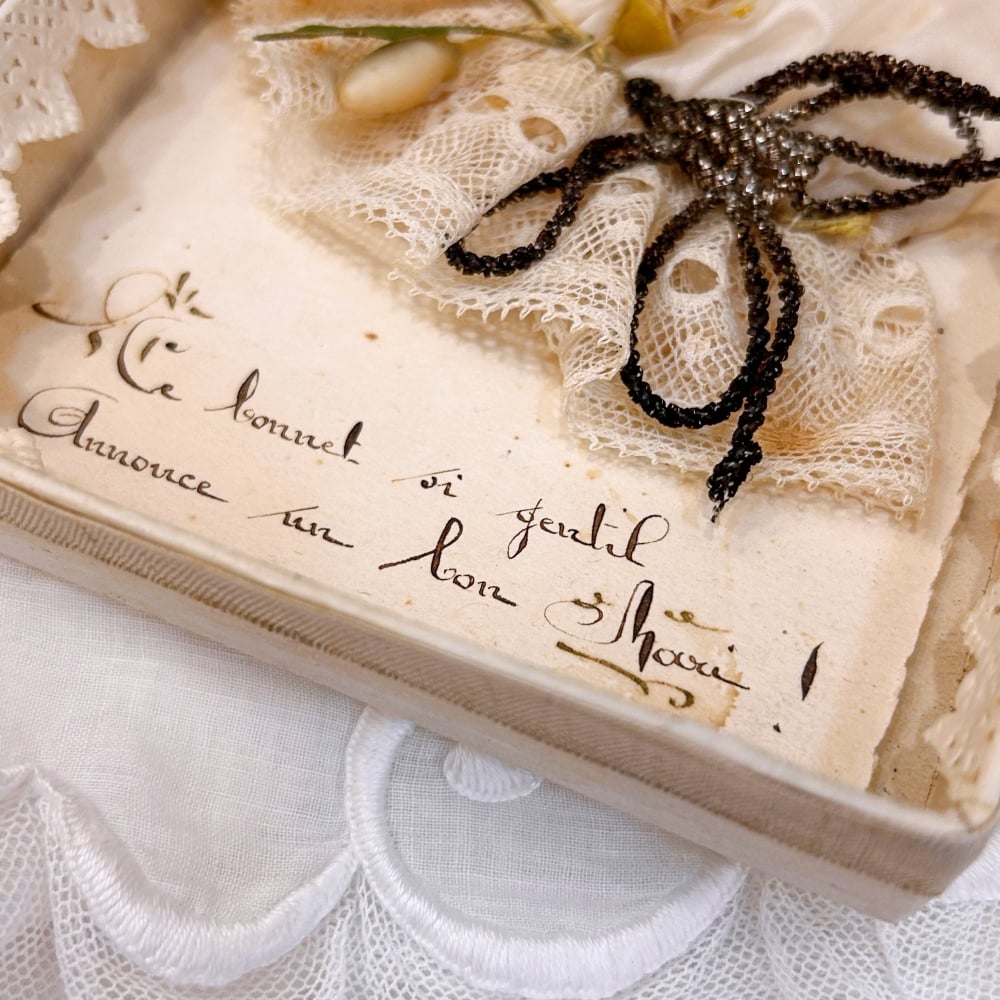 Ce bonnet si gentil
Annonce un bon Mari !